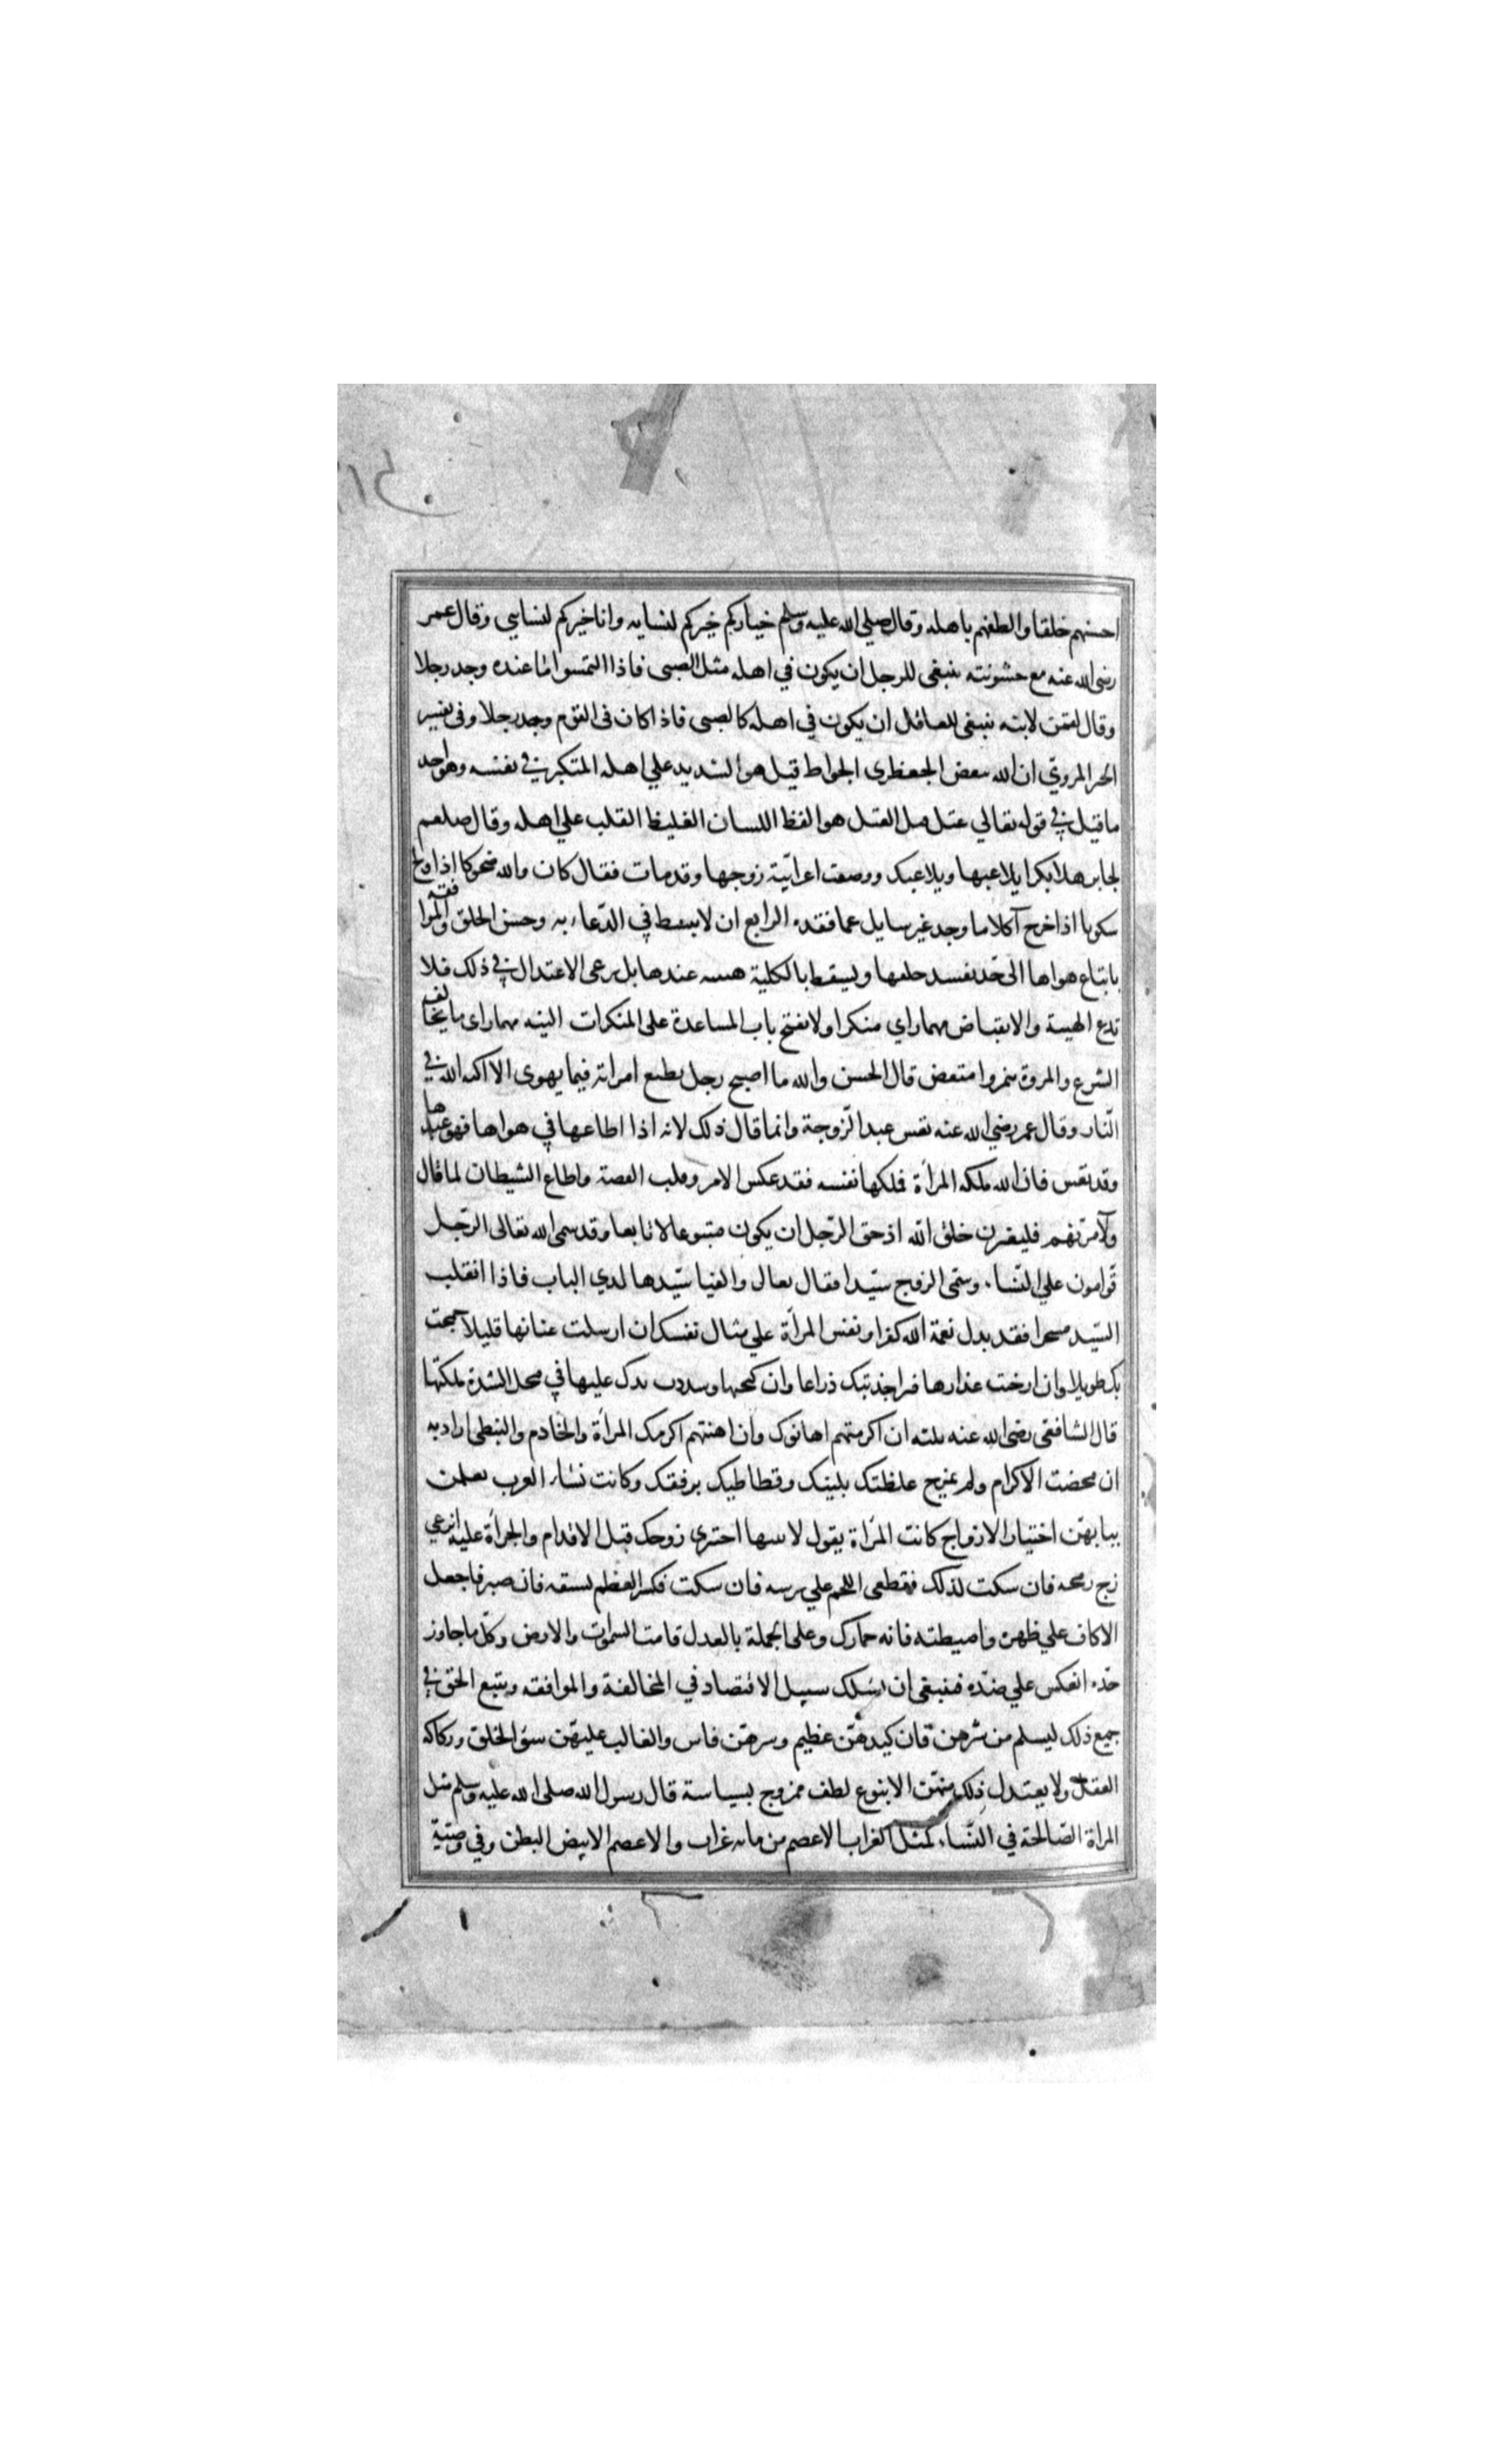 احسنهم خلقا والطفهم باهله وقال صلي الله عليه وسلم خياركم خيركم لنسايه وانا خيركم لنسايي وقال عمر
رضي الله عنه مع خشونته ينبغي للرجل ان يكون في اهله مثل الصبي فاذا التمسوا ما عنده وجد رجلا
وقال لقمن لابنه ينبغي للعاقل ان يكون في اهله كالصبي فاذا كان في القوم وجد رجلا وفي تفسير
الخبر المروي ان الله يبغض الجعظري الجواظ قيل هو الشديد علي اهله المتكبر في نفسه وهو احد
ما قيل في قوله تعالي عتل قيل العتل هو الفظ اللسان الغليظ القلب علي اهله وقال صلعم
لجابر هلا بكرا يلاعبها ويلاعبك ووصفت اعرابية زوجها وقد مات فقال كان والله ضحوكا اذا ولج
سكوبا اذا خرج آكلا ما وجد غير سايل عما فقد الرابع ان لا يبسط في الدعابه وحسن الخلق والموافقة
باتباع هواها الي حد يفسد خلقها ويسقط بالكلية هيبته عندها بل يرعي الاعتدال في ذلك فلا
تدع الهيبة والانقباض مهما راي منكرا ولا يفتح باب المساعدة علي المنكرات البته مهما راي ما يخالف
الشرع والمروة تنمر وامتعض قال الحسن والله ما اصبح رجل يطيع امراته فيما يهوي الا اكبه الله في
النار وقال عمر رضي الله عنه تعس عبد الزوجة وانما قال ذلك لانه اذا اطاعها في هواها فهو عبدها
وقد تعس فان الله ملكه المرأة فملكها نفسه فقد عكس الامر وقلب القصة واطاع الشيطان لما قال
ولآمرنهم فليغيرن خلق الله اذ حق الرجل ان يكون متبوعا لا تابعا وقد سمي الله تعالي الرجل
قوامون علي النساء وسمي الزوج سيدا فقال تعالي والفيا سيدها لدي الباب فاذا انقلب
السيد مسخرا فقد بدل نعمة الله كفرا ونفس المرأة علي مثال نفسك ان ارسلت عنانها قليلا جمحت
بك طويلا وان ارخيت عذارها فترا جذبتك ذراعا وان كبحتها وشددت يدك عليها في محل الشدة ملكتها
قال الشافعي رضي الله عنه ثلثه ان اكرمتهم اهانوك وان اهنتهم اكرموك المرأة والخادم والنبطي اراد به
ان محضت الاكرام ولم تمزج غلظتك بلينك وفظاظتك برفقك وكانت نساء العرب يعلمن
بناتهن اختبار الازواج كانت المرأة يقول لابنتها اختبري زوجك قبل الاقدام والجرأة عليه انزعي
زج رمحه فان سكت لذلك فقطعي اللحم علي ترسه فان سكت فكسر العظم بسيفه فان صبر فاجعلي
الاكاف علي ظهره وامتطيه فانه حمارك وعلي الجملة بالعدل قامت السموات والارض وكل ما جاوز
حده انعكس علي ضده فينبغي ان يسلك سبيل الاقتصاد في المخالفة والموافقه ويتبع الحق في
جميع ذلك ليسلم من شرهن فان كيدهن عظيم وشرهن فاش والغالب عليهن سوء الخلق وركاكه
العقل ولا يعتدل ذلك منهن الا بنوع لطف ممزوج بسياسة قال رسول الله صلي الله عليه وسلم مثل
المراة الصالحة في النساء كمثل الغراب الاعصم من مايه غراب والاعصم الابيض البطن وفي وصية